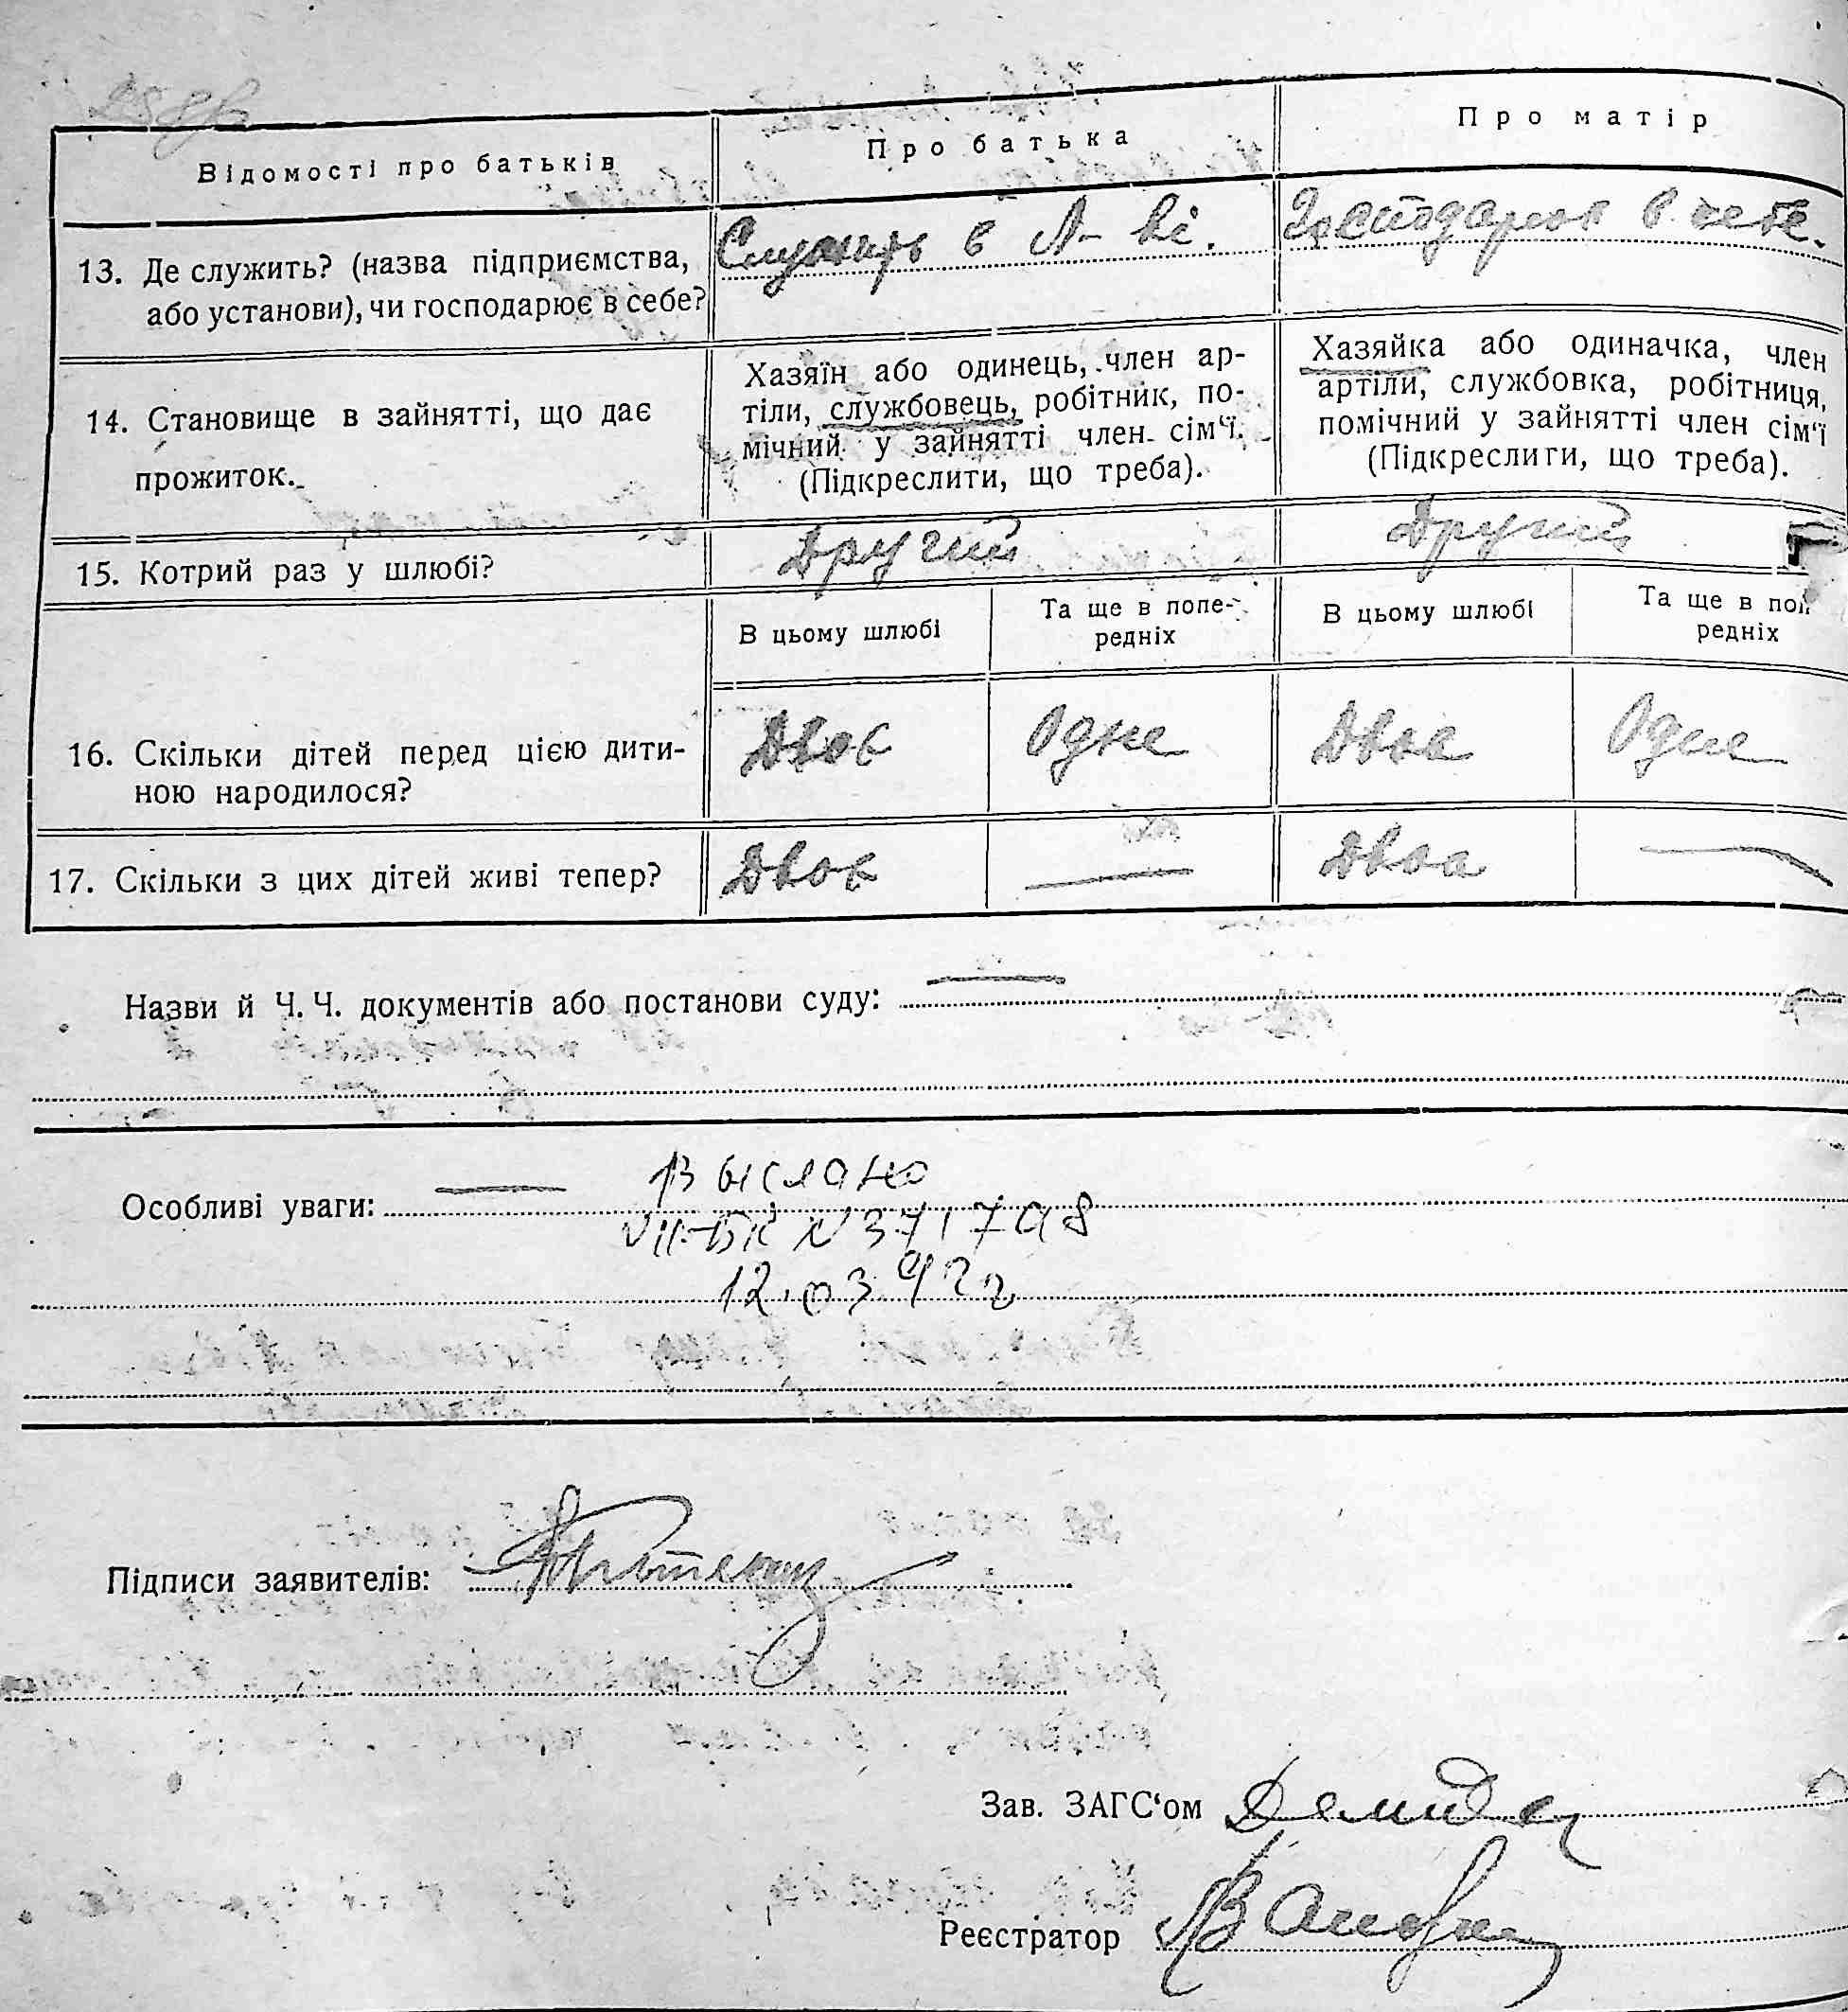 Відомості про батьків
Про батька
Про матір
13. Де служить? (назва підприємства,
або установи), чи господарює в себе?
Служить в
Господарює в себе.
14. Становище в зайнятті, що дає
прожиток.
Хазяїн або одинець, член ар-
тіли, службовець, робітник, по-
мічний у зайнятті член сім‘ї.
(Підкреслити, що треба).
Хазяйка або одиначка, член
артіли, службовка, робітниця,
помічний у зайнятті член сім‘ї
(Підкреслити, що треба).
15. Котрий раз у шлюбі?
Другий
Другий
В цьому шлюбі
Та ще в попе-
редніх
В цьому шлюбі
Та ще в поп
редніх
16. Скільки дітей перед цією дити-
ною народилося?
Двоє
Одне
Двоє
Одне
17. Скільки з цих дітей живі тепер?
Двоє
—
Двоє
—
Назви й Ч. Ч. документів або постанови суду: —
Особливі уваги: —
Выслано
12.03.92г
Підписи заявителів:
Зав. ЗАГС‘ом
Реєстратор